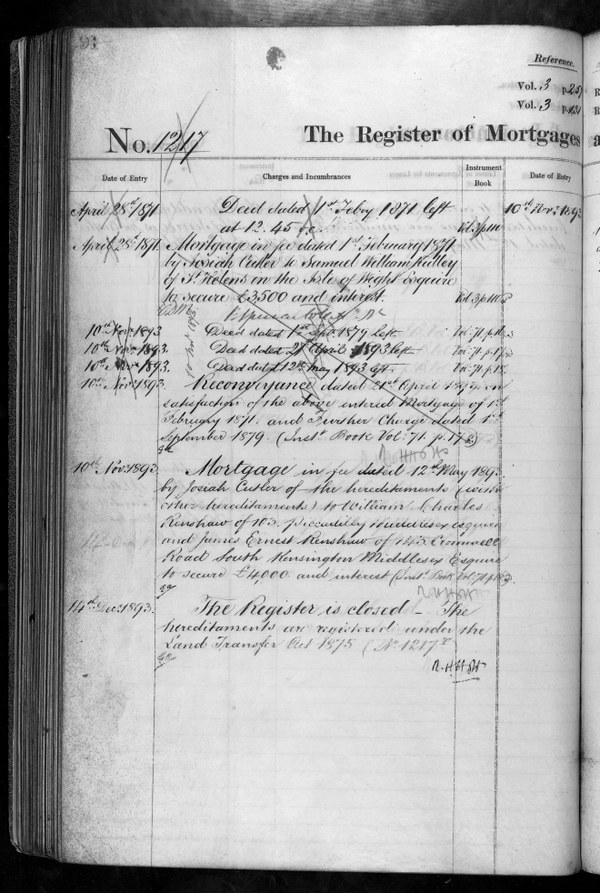 Reference.
Vol. 3 p.
Vol. 3 p.
No. 1217
The Register of Mortgages a
Date of Entry
Charges and Incumbrances
Instrument Book
Date of Entry
April 28th 1871
Deed dated 1st Febry 1871 left
10th Novr 1893
at 12.45
Vol. 3 p.
April 28th 1871
Mortgage in fee dated 1st February 1871
by Josiah Cutler to Samuel William
of St Helens in the Isle of Wight Esquire
to secure £3500 and interest.
Vol. 3 p.
10th Novr 1893
Deed dated 1st Sepr 1879 left
Vol. 71 p.
10th Novr 1893.
Deed dated 21 April 1893 left
Vol. 71 p.
10th Novr 1893.
Deed dated 12th May 1893 left
Vol. 71 p.
10th Novr 1893.
Reconveyance dated 21st April 1893 in
satisfaction of the above entered Mortgage of 1st
February 1871. and Further Charge dated 1st
September 1879 (Inst. Book Vol. 71. p. 17)
10th Novr 1893.
Mortgage in fee dated 12th May 1893
by Josiah Cutler of the hereditaments (with
other hereditaments) to William Charles
Renshaw of 103. Piccadilly Middlesex esquire
and James Ernest Renshaw of 145 Cromwell
Road South Kensington Middlesex Esquire
to secure £4000 and interest (Inst. Book Vol. 71 p.
14th Decr 1893.
The Register is closed. The
hereditaments are registered under the
Land Transfer Act 1875 (No. 1217